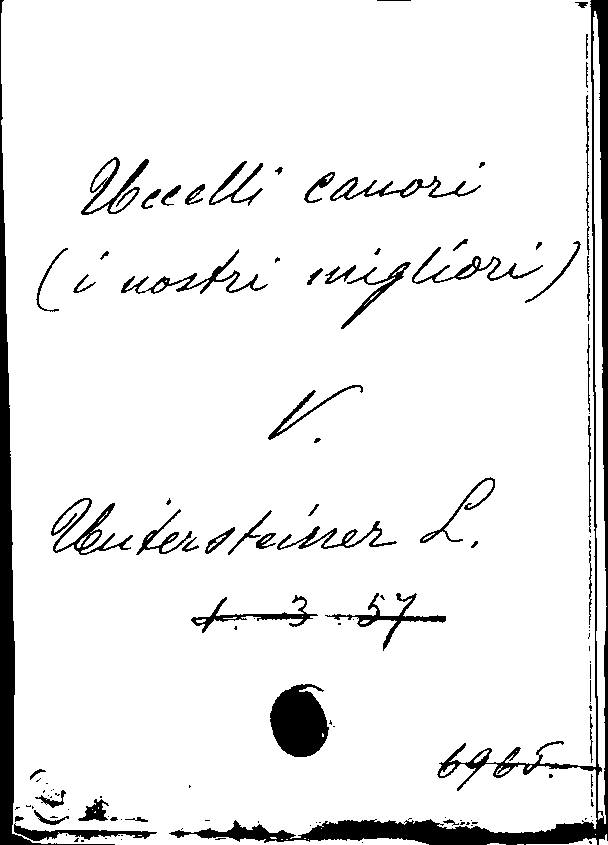 Uccelli canori
(i nostri migliori)
V.
Untersteiner L.
1. 3. 57
6965.